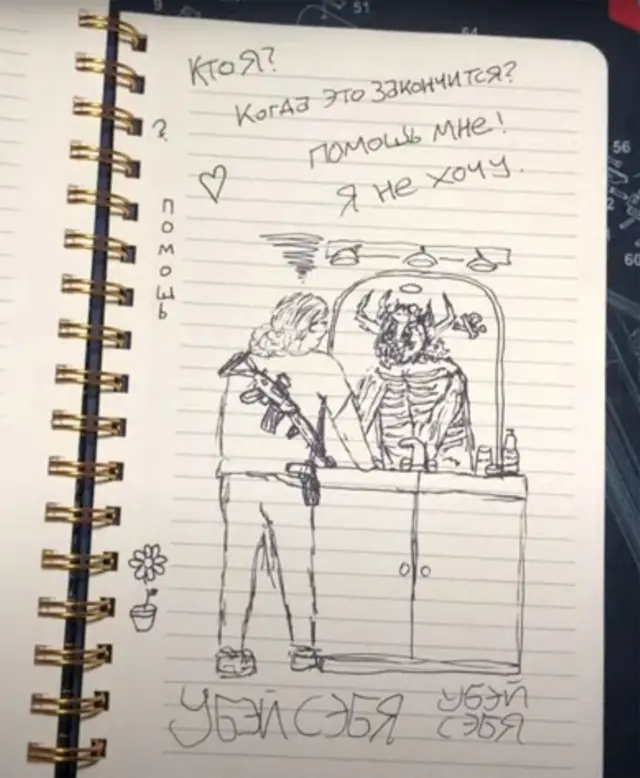 Кто я?
Когда это закончится?
?
помошь мне!
я не хочу.
помошь
убэй сэбя
убэй
сэбя
9
51
54
56
2
60